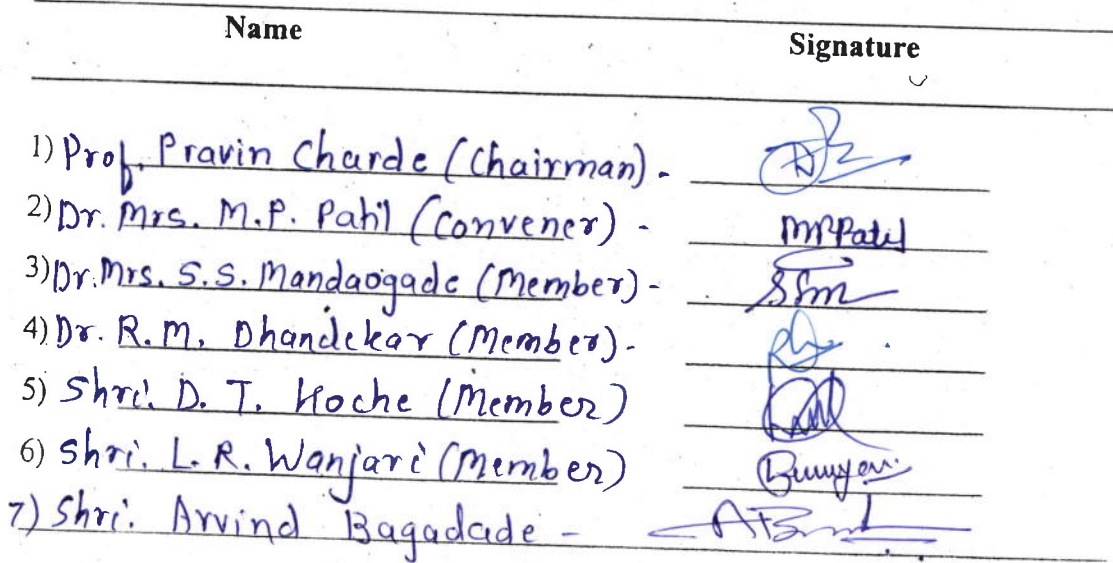 Name Signature
1) Prof. Pravin Charde (Chairman) -
2) Dr. Mrs. M.P. Patil (Convener) - MPPatil
3) Dr. Mrs. S.S. Mandaogade (Member) - SSm
4) Dr. R.M. Dhandekar (Member) -
5) Shri. D. T. Hoche (Member)
6) Shri. L. R. Wanjari (Member)
7) Shri. Arvind Bagadade -